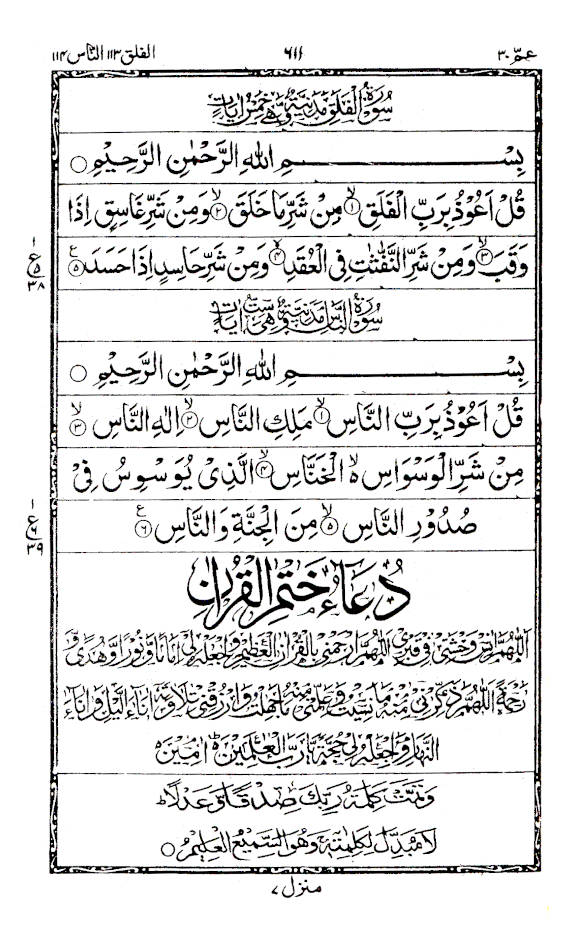 عمّ ٣٠ ٦١١ الفلق ١١٣ الناس ١١٤
سُوْرَةُ الْفَلَقِ مَدَنِيَّةٌ وَّهِيَ خَمْسُ اٰيَاتٍ
بِسْمِ اللهِ الرَّحْمٰنِ الرَّحِيْمِ ○
قُلْ اَعُوْذُ بِرَبِّ الْفَلَقِ ۙ﴿١﴾ مِنْ شَرِّ مَا خَلَقَ ۙ﴿٢﴾ وَمِنْ شَرِّ غَاسِقٍ اِذَا
وَقَبَ ۙ﴿٣﴾ وَمِنْ شَرِّ النَّفّٰثٰتِ فِي الْعُقَدِ ۙ﴿٤﴾ وَمِنْ شَرِّ حَاسِدٍ اِذَا حَسَدَ ﴿٥﴾ ع
١ ع ٥ ٣٨
سُوْرَةُ النَّاسِ مَدَنِيَّةٌ وَّهِيَ سِتُّ اٰيَاتٍ
بِسْمِ اللهِ الرَّحْمٰنِ الرَّحِيْمِ ○
قُلْ اَعُوْذُ بِرَبِّ النَّاسِ ۙ﴿١﴾ مَلِكِ النَّاسِ ۙ﴿٢﴾ اِلٰهِ النَّاسِ ۙ﴿٣﴾
مِنْ شَرِّ الْوَسْوَاسِ ۙ۵ الْخَنَّاسِ ۙ﴿٤﴾ الَّذِيْ يُوَسْوِسُ فِيْ
صُدُوْرِ النَّاسِ ۙ﴿٥﴾ مِنَ الْجِنَّةِ وَالنَّاسِ ﴿٦﴾ ع
١ ع ٦ ٣٩
دُعَآءُ خَتْمِ الْقُرْاٰنِ
اَللّٰهُمَّ اٰنِسْ وَحْشَتِيْ فِيْ قَبْرِيْ اَللّٰهُمَّ ارْحَمْنِيْ بِالْقُرْاٰنِ الْعَظِيْمِ وَاجْعَلْهُ لِيْ اِمَامًا وَّنُوْرًا وَّهُدًى وَّ
رَحْمَةً اَللّٰهُمَّ ذَكِّرْنِيْ مِنْهُ مَا نَسِيْتُ وَعَلِّمْنِيْ مِنْهُ مَا جَهِلْتُ وَارْزُقْنِيْ تِلَاوَتَهٗ اٰنَآءَ الَّيْلِ وَاٰنَآءَ
النَّهَارِ وَاجْعَلْهُ لِيْ حُجَّةً يَّا رَبَّ الْعٰلَمِيْنَ ۵ اٰمِيْنَ ۵
وَتَمَّتْ كَلِمَتُ رَبِّكَ صِدْقًا وَّعَدْلًا ؕ
لَا مُبَدِّلَ لِكَلِمٰتِهٖ وَهُوَ السَّمِيْعُ الْعَلِيْمُ ○
منزل ٧